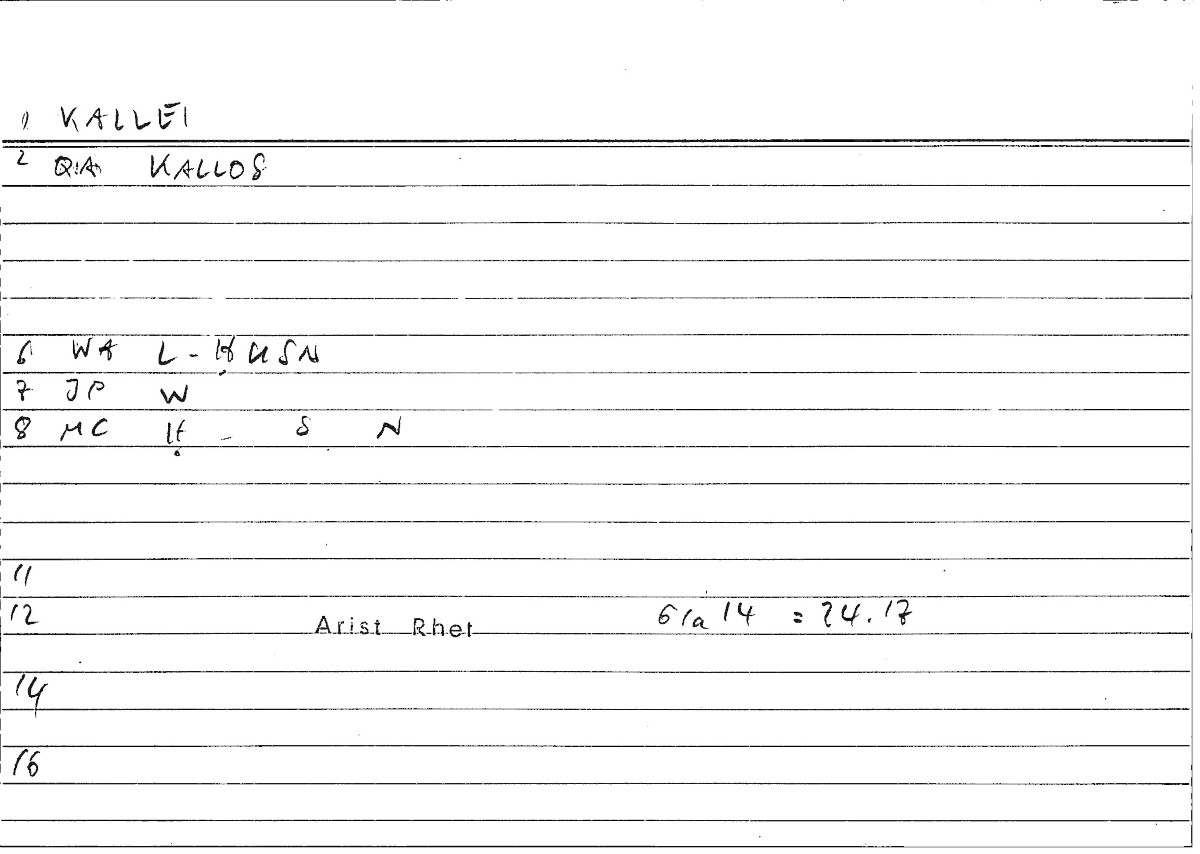 1 KALLEI
2 QA KALLOS
6 WA L-ḤUSN
7 JP W
8 MC Ḥ - S N
11
12 Arist Rhet 61a14 = 24.17
14
16